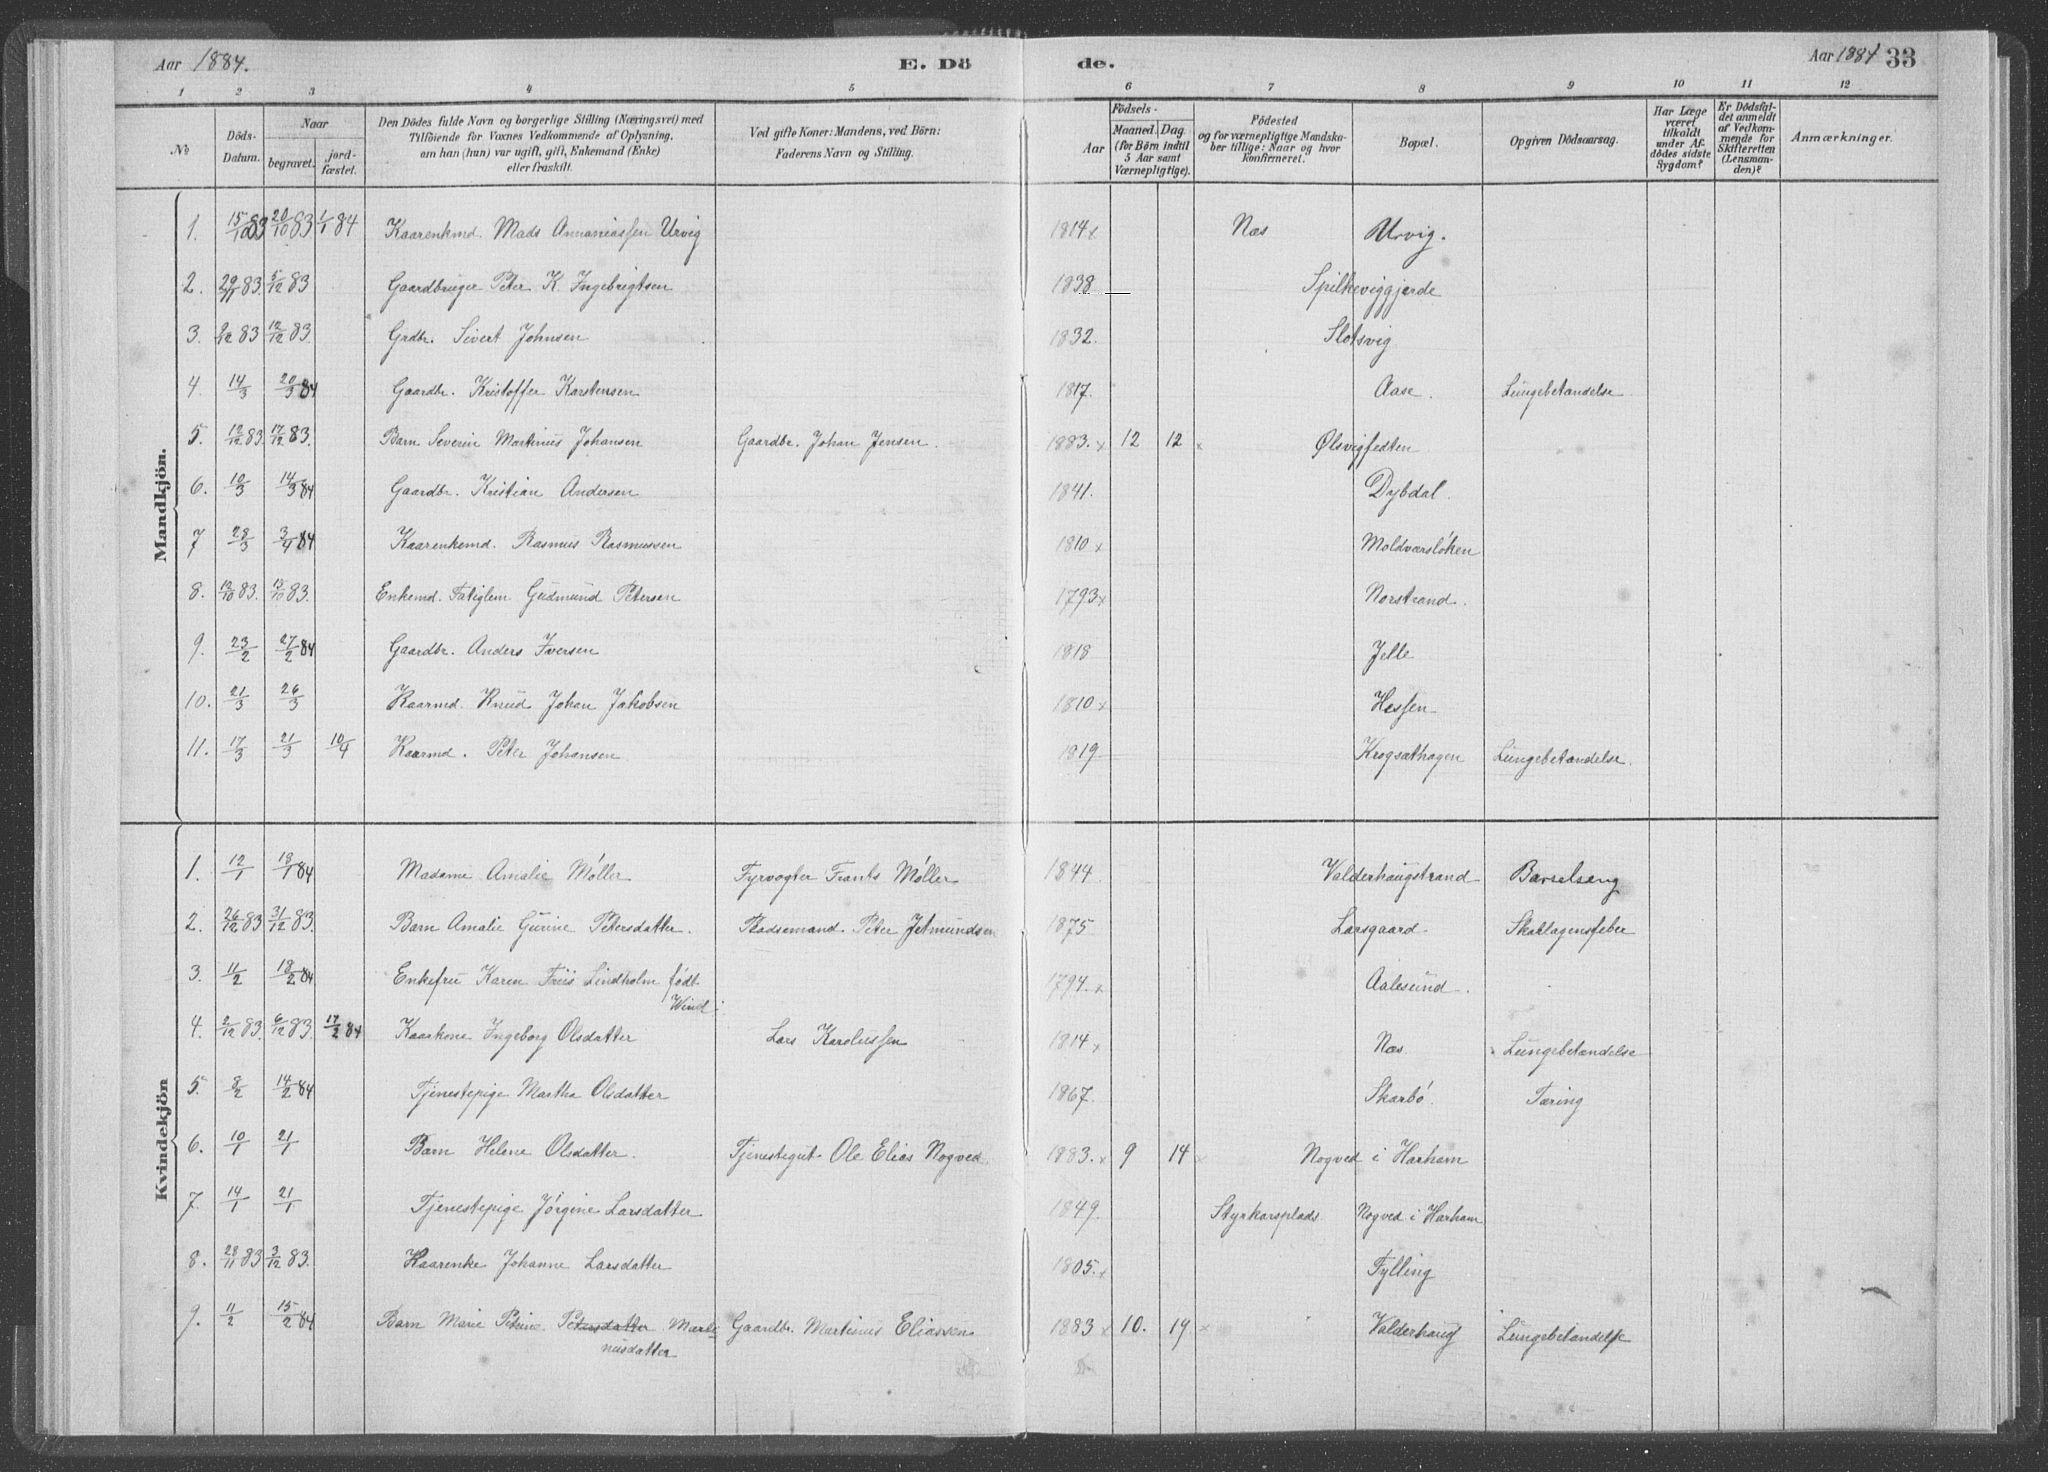 Aar 1884.
E. Dö
de.
Aar 1884 33
1 2 3 4 5 6 7 8 9 10 11 12
No
Döds-Datum.
Naar
begravet.
jord-fæstet.
Den Dödes fulde Navn og borgerlige Stilling (Næringsvei) med
Tilföiende for Voxnes Vedkommende af Oplysning,
om han (hun) var ugift, gift, Enkemand (Enke)
eller fraskilt.
Ved gifte Koner: Mandens, ved Börn:
Faderens Navn og Stilling.
Födsels-
Aar
Maaned. Dag.
(for Börn indtil
5 Aar samt
Værnepligtige).
Födested
og for værnepligtige Mandska-
ber tillige: Naar og hvor
konfirmeret.
Bopæl.
Opgiven Dödsaarsag.
Har Læge
været
tilkaldt
under Af-
dödes sidste
Sygdom?
Er Dödsfal-
det anmeldt
af Vedkom-
mende for
Skifteretten
(Lensman-
den)?
Anmærkninger.
Mandkjön.
1. 15/10 83 20/10 83 1/1 84 Kaarenkmd. Mads Annaniassen Urvig 1814 x Næs Urvig.
2. 29/11 83 5/12 83 Gaardbruger Peter K. Ingebrigtsen 1838 Spilkeviggjerde
3. 9/12 83 12/12 83. Grdbr. Sivert Johnsen 1832. Slotsvig
4. 14/3 20/3 84 Gaardbr. Kristoffer Karstensen 1817. Aase. Lungebetændelse
5. 12/12 83. 17/12 83. Barn Severin Martinus Johansen Gaardbr. Johan Jensen. 1883. x 12 12 x Ølsvigfedten
6. 10/3 14/3 84 Gaardbr. Kristian Andersen 1841. Dybdal.
7 28/3 3/4 84 Kaarenkemd. Rasmus Rasmussen 1810 x Moldværsløken
8. 12/10 83. 15/10 83. Enkemd. Fatiglem Gudmund Petersen 1793 x Norstrand.
9. 23/2 27/2 84 Gaardbr. Anders Iversen 1818 Jelle
10. 21/3 26/3 Kaarmd. Knud Johan Jakobsen 1810 x Hessen
11. 17/3 21/3 10/4 Kaarmd. Peter Johansen 1819 Krogsæthagen Lungebetændelse.
Kvindekjön
1. 12/1 18/1 84 Madame Amalie Møller Fyrvogter Frants Møller 1844. Valderhaugstrand Barselseng
2. 26/12 83 31/12 83. Barn Amalie Gurine Petersdatter. Pladsemand Peter Jetmundsen 1875 Larsgaard. Skarlagensfeber
3. 11/2 18/2 84 Enkefru Karen Friis Lindholm født
Wind 1794. x Aalesund.
4. 2/12 83. 6/12 83. 17/2 84 Kaarkone Ingeborg Olsdatter Lars Karolussen 1814 x Næs Lungebetændelse
5. 8/2 14/2 84 Tjenestepige Martha Olsdatter 1867. Skarbø. Tæring
6. 10/1 21/1 Barn Helene Olsdatter. Tjenestegut Ole Elias Nogved. 1883. x 9 14 x Nogved i Harham
7. 14/1 21/1 Tjenestepige Jørgine Larsdatter 1849. Styrkarsplads Nogved i Harham
8. 28/11 83 3/12 83. Kaarenke Johanne Larsdatter 1805. x Fylling
9. 11/2 15/2 84 Barn Marie Petrine Petersdatter Marti
nusdatter Gaardbr. Martinus Eliassen 1883 x 10. 19 x Valderhaug Lungebetændelse